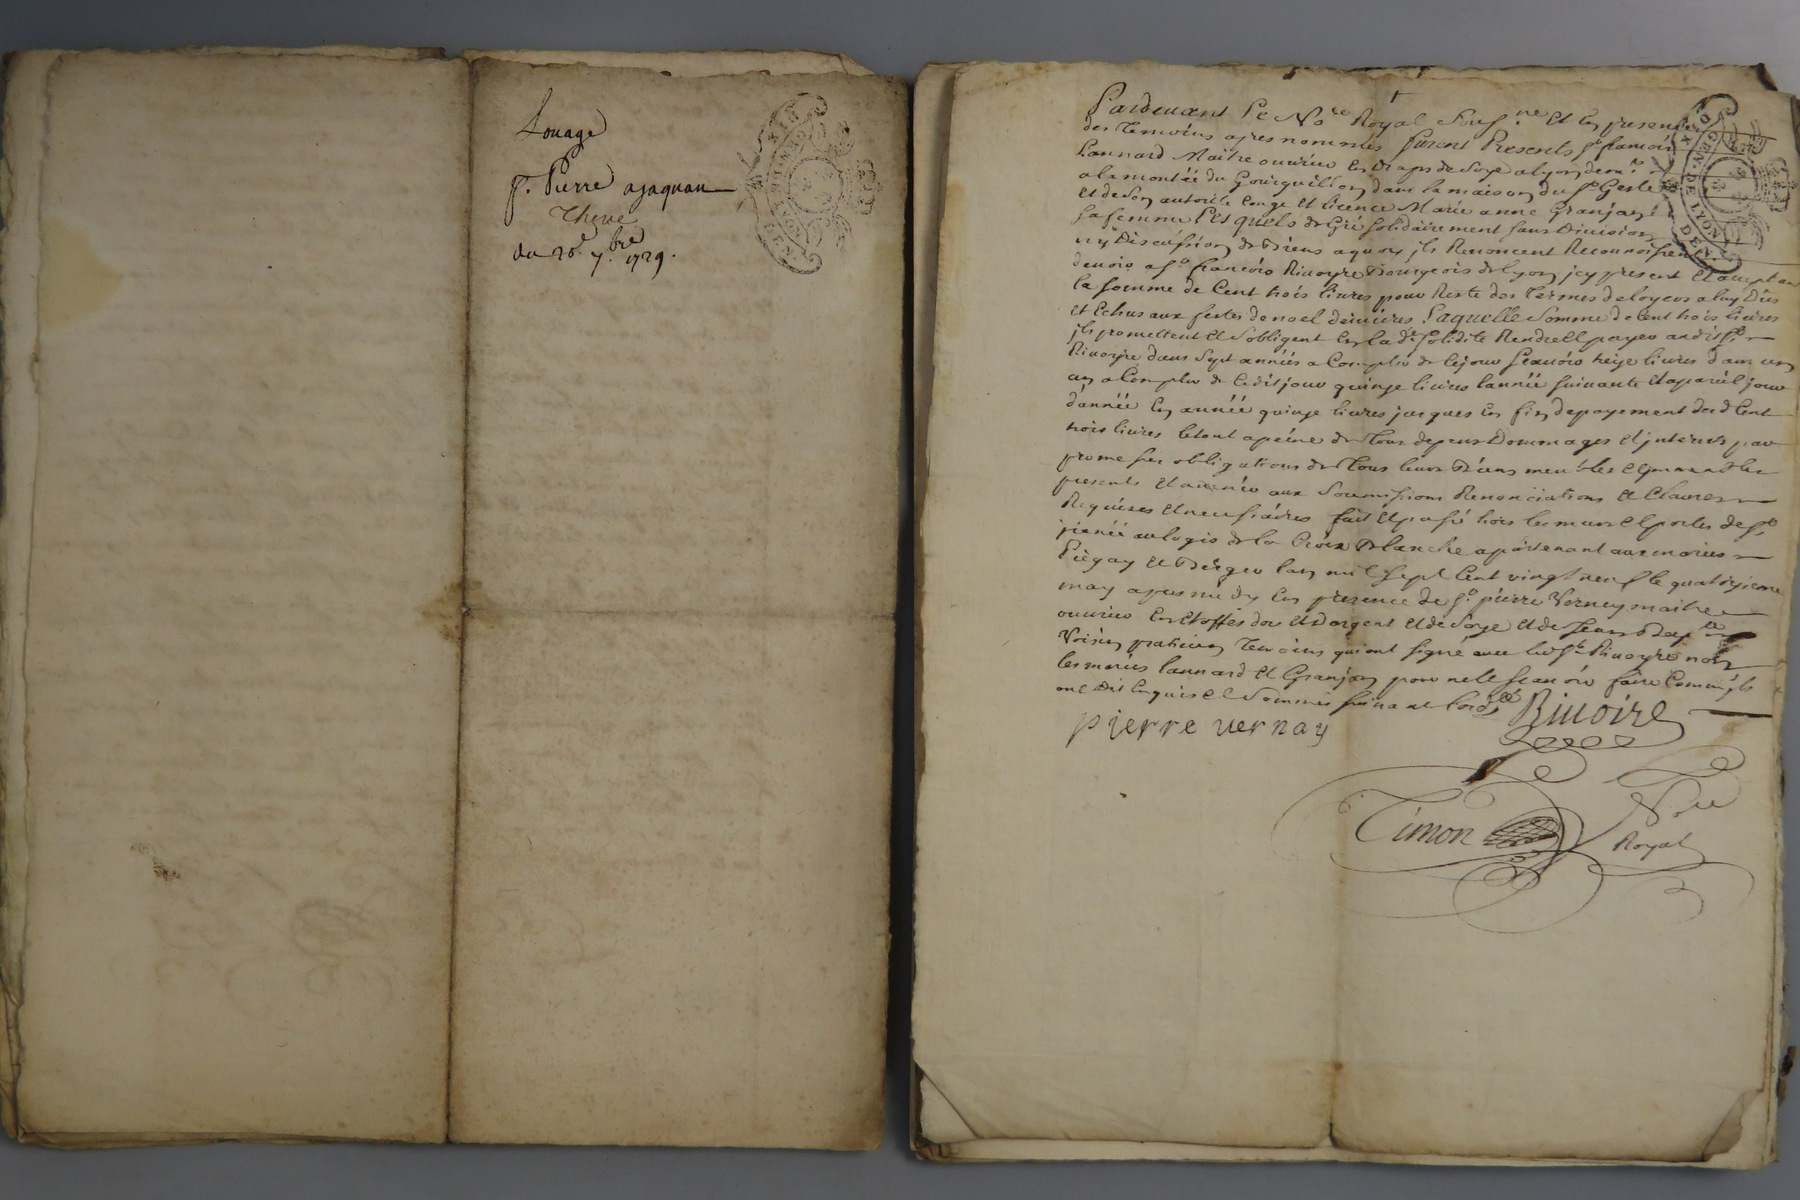 Louage
Sr. Pierre a jaquau
Theve
du 28e 7.bre 1729.
GEN. DE LYON
Pardevant Le No.re Royal Sousg.né Et En presence
des Temoins apres nommés furent Presents Sr. francois
Lannard Maitre ouvrier En draps de Soye a lyon dem.t
a la montée du Gourguillon dans la maison du Sr. Geste
Et de Son autorité Congé Et licence Marie anne Granjan
sa femme Lesquels de Gré Solidairement sans Division
ny Discussion de Biens a quoy ils Renoncent Reconnoissent
devoir a Sr. francois Rivoyre Bourgeois de lyon jcy present Et aceptant
la somme de Cent trois livres pour Reste des Termes de loyers a luy Dus
et Echus aux festes de noel dernieres. Laquelle Somme de Cent trois livres
ils promettent Et Sobligent En la d.e Solidité Rendre Et payer audit Sr.
Rivoyre dans Sept années a Compter de Ce jour Scavoir treize livres dans un
an a Compter de Cedit jour quinze livres lannée suivante Et a pareil jour
dannée En année quinze livres jusques En fin de payement desd. Cent
trois livres le tout a peine de Tous depens Dommages Et jnterests par
promesses obligations de Tous leurs Biens meubles Et jmmeubles
presents Et avenir aux Soumissions Renonciations Et Clauses
Requises Et necessaires fait Et passé hors les murs Et portes de St.
jrenée au logis de la Croix Blanche apartenant aux maries
Piegay Et Berger Lan mil Sept Cent vingt neuf le quatorzieme
may apres midy En presence de Sr. pierre Verney maitre
ouvrier En Etoffes dor Et Dargent Et de Soye Et de Jean Bap.te
Voisin praticien Temoins qui ont signé avec led. Sr. Rivoyre non
les maries Lannard Et Granjan pour ne le scavoir faire Comme ils
ont Dit Enquis Et Sommés suivant lord.ce Rivoire
pierre vernay
Timon N.re
Royal